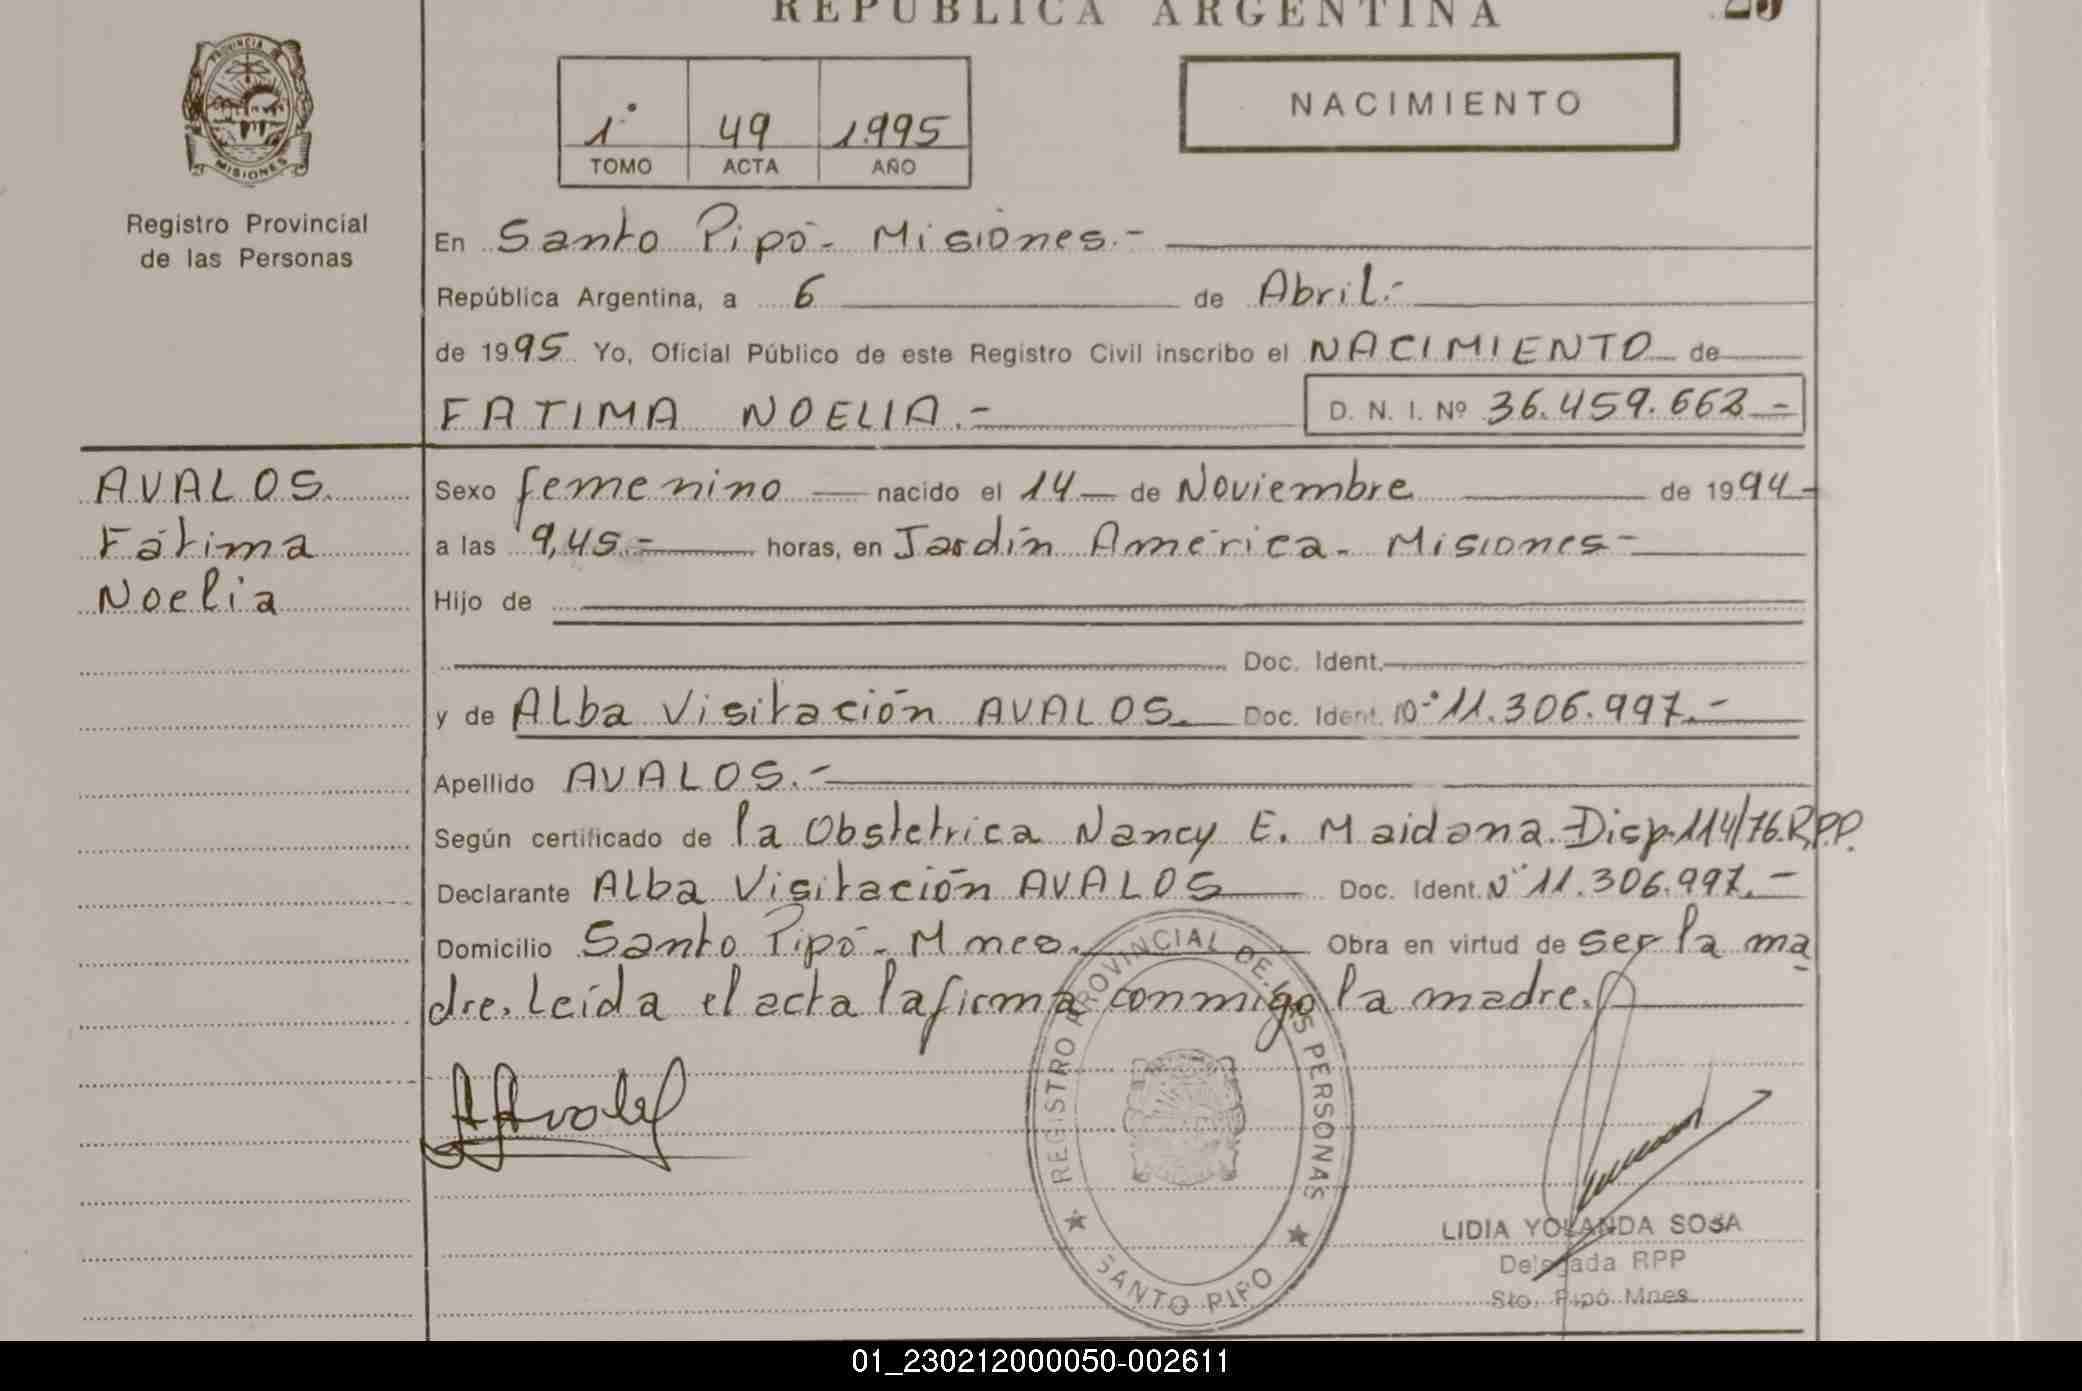 REPUBLICA ARGENTINA
25
PROVINCIA DE
MISIONES
Registro Provincial
de las Personas
1° 49 1995
TOMO ACTA AÑO
NACIMIENTO
En Santo Pipó - Misiones.-
República Argentina, a 6 de Abril.-
de 1995 Yo, Oficial Público de este Registro Civil inscribo el NACIMIENTO de
FATIMA NOELIA.- D. N. I. Nº 36.459.662.-
AVALOS
Fátima
Noelia
Sexo femenino nacido el 14 de Noviembre de 1994-
a las 9,45.- horas, en Jardín América - Misiones-
Hijo de
Doc. Ident.
y de Alba Visitación AVALOS. Doc. Ident. Nº 11.306.997.-
Apellido AVALOS.-
Según certificado de la Obstetrica Nancy E. Maidana. Disp. 114/76.R.P.P.
Declarante Alba Visitación AVALOS Doc. Ident. Nº 11.306.997.-
Domicilio Santo Pipó - Mnes. Obra en virtud de ser la ma
dre. Leída el acta la firma conmigo la madre.
A Avalos
REGISTRO PROVINCIAL DE LAS PERSONAS
SANTO PIPO
LIDIA YOLANDA SOSA
Delegada RPP
Sto. Pipó Mnes
01_230212000050-002611